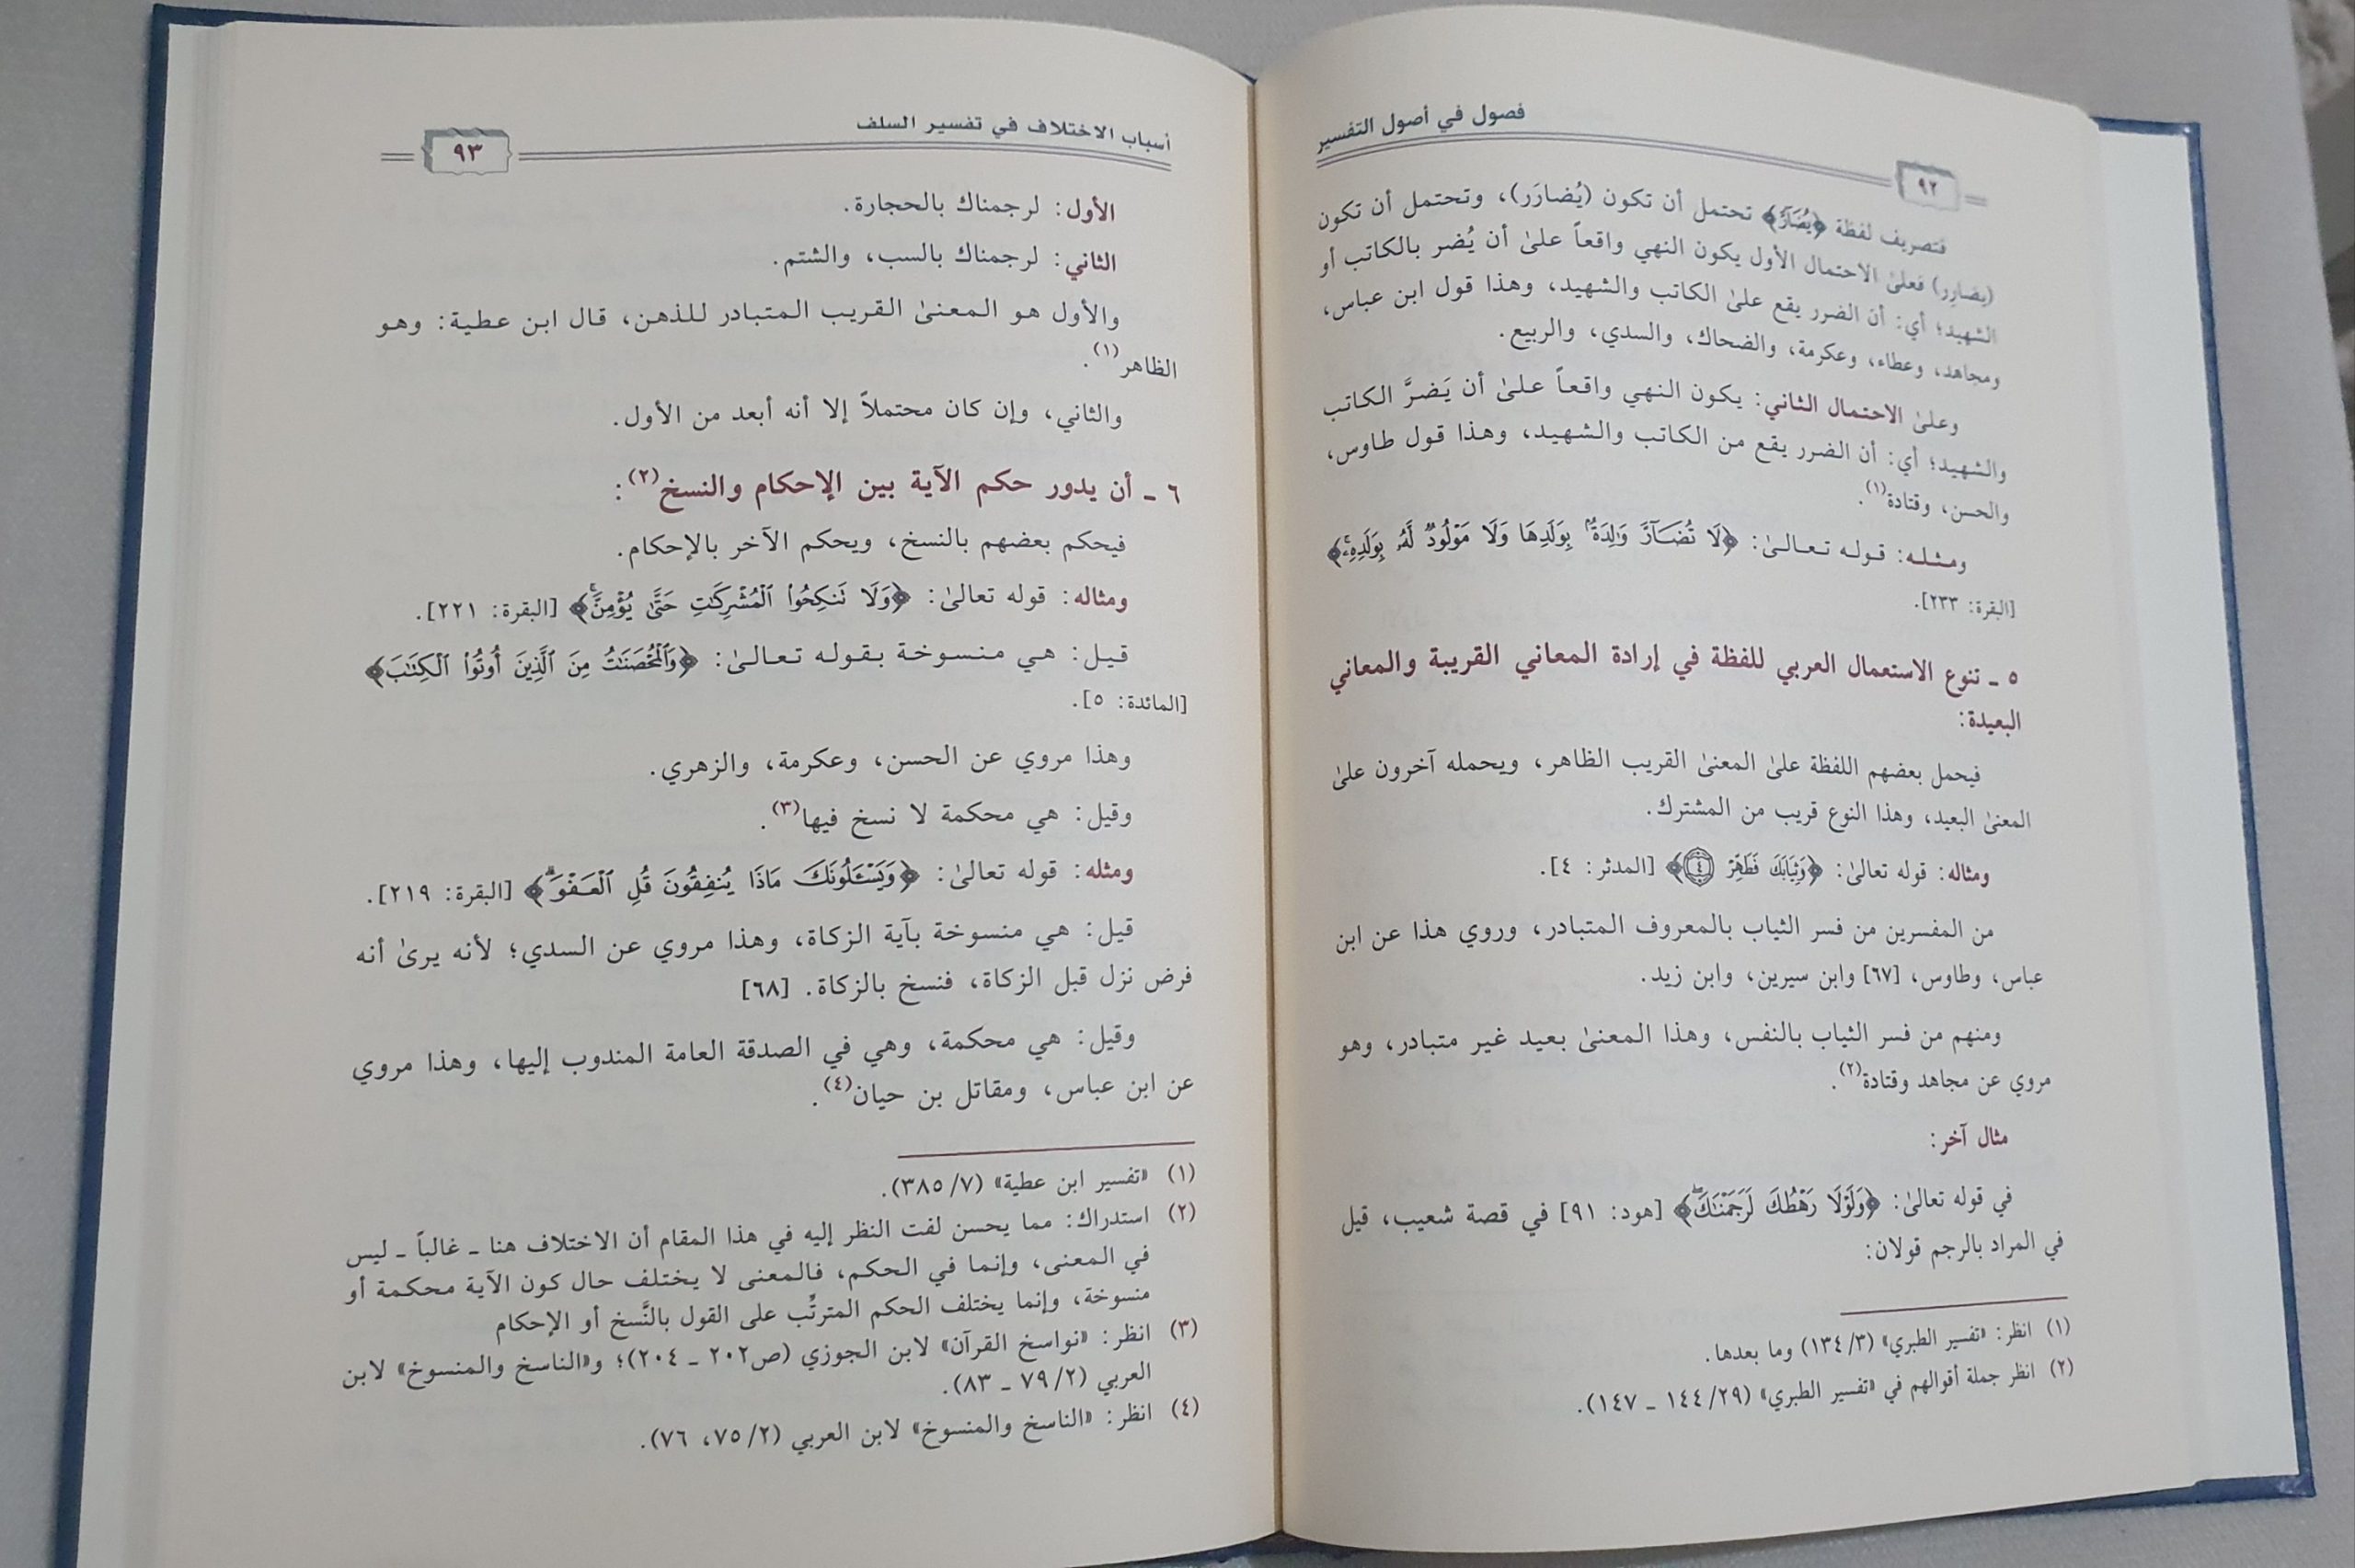 فصول في أصول التفسير
٩٢
فتصريف لفظة ﴿يُضَآرَّ﴾ تحتمل أن تكون (يُضارَر)، وتحتمل أن تكون
(يضارِر) فعلىٰ الاحتمال الأول يكون النهي واقعاً علىٰ أن يُضر بالكاتب أو
الشهيد؛ أي: أن الضرر يقع علىٰ الكاتب والشهيد، وهذا قول ابن عباس،
ومجاهد، وعطاء، وعكرمة، والضحاك، والسدي، والربيع.
وعلىٰ الاحتمال الثاني: يكون النهي واقعاً علىٰ أن يَضرَّ الكاتب
والشهيد؛ أي: أن الضرر يقع من الكاتب والشهيد، وهذا قول طاوس،
والحسن، وقتادة(١).
ومثله: قوله تعالىٰ: ﴿لَا تُضَآرَّ وَٰلِدَةُۢ بِوَلَدِهَا وَلَا مَوْلُودٌ لَّهُۥ بِوَلَدِهِۦۚ﴾
[البقرة: ٢٣٣].
٥ ـ تنوع الاستعمال العربي للفظة في إرادة المعاني القريبة والمعاني
البعيدة:
فيحمل بعضهم اللفظة علىٰ المعنىٰ القريب الظاهر، ويحمله آخرون علىٰ
المعنىٰ البعيد، وهذا النوع قريب من المشترك.
ومثاله: قوله تعالىٰ: ﴿وَثِيَابَكَ فَطَهِّرْ ٤﴾ [المدثر: ٤].
من المفسرين من فسر الثياب بالمعروف المتبادر، وروي هذا عن ابن
عباس، وطاوس، [٦٧] وابن سيرين، وابن زيد.
ومنهم من فسر الثياب بالنفس، وهذا المعنىٰ بعيد غير متبادر، وهو
مروي عن مجاهد وقتادة(٢).
مثال آخر:
في قوله تعالىٰ: ﴿وَلَوْلَا رَهْطُكَ لَرَجَمْنَٰكَۖ﴾ [هود: ٩١] في قصة شعيب، قيل
في المراد بالرجم قولان:
(١) انظر: «تفسير الطبري» (٣/ ١٣٤) وما بعدها.
(٢) انظر جملة أقوالهم في «تفسير الطبري» (٢٩/ ١٤٤ ـ ١٤٧).
أسباب الاختلاف في تفسير السلف
٩٣
الأول: لرجمناك بالحجارة.
الثاني: لرجمناك بالسب، والشتم.
والأول هو المعنىٰ القريب المتبادر للذهن، قال ابن عطية: وهو
الظاهر(١).
والثاني، وإن كان محتملاً إلا أنه أبعد من الأول.
٦ ـ أن يدور حكم الآية بين الإحكام والنسخ(٢):
فيحكم بعضهم بالنسخ، ويحكم الآخر بالإحكام.
ومثاله: قوله تعالىٰ: ﴿وَلَا تَنكِحُوا۟ ٱلْمُشْرِكَٰتِ حَتَّىٰ يُؤْمِنَّۚ﴾ [البقرة: ٢٢١].
قيل: هي منسوخة بقوله تعالىٰ: ﴿وَٱلْمُحْصَنَٰتُ مِنَ ٱلَّذِينَ أُوتُوا۟ ٱلْكِتَٰبَ﴾
[المائدة: ٥].
وهذا مروي عن الحسن، وعكرمة، والزهري.
وقيل: هي محكمة لا نسخ فيها(٣).
ومثله: قوله تعالىٰ: ﴿وَيَسْـَٔلُونَكَ مَاذَا يُنفِقُونَ قُلِ ٱلْعَفْوَۗ﴾ [البقرة: ٢١٩].
قيل: هي منسوخة بآية الزكاة، وهذا مروي عن السدي؛ لأنه يرىٰ أنه
فرض نزل قبل الزكاة، فنسخ بالزكاة. [٦٨]
وقيل: هي محكمة، وهي في الصدقة العامة المندوب إليها، وهذا مروي
عن ابن عباس، ومقاتل بن حيان(٤).
(١) «تفسير ابن عطية» (٧/ ٣٨٥).
(٢) استدراك: مما يحسن لفت النظر إليه في هذا المقام أن الاختلاف هنا ـ غالباً ـ ليس
في المعنى، وإنما في الحكم، فالمعنى لا يختلف حال كون الآية محكمة أو
منسوخة، وإنما يختلف الحكم المترتِّب على القول بالنَّسخ أو الإحكام
(٣) انظر: «نواسخ القرآن» لابن الجوزي (ص٢٠٢ ـ ٢٠٤)؛ و«الناسخ والمنسوخ» لابن
العربي (٢/ ٧٩ ـ ٨٣).
(٤) انظر: «الناسخ والمنسوخ» لابن العربي (٢/ ٧٥، ٧٦).